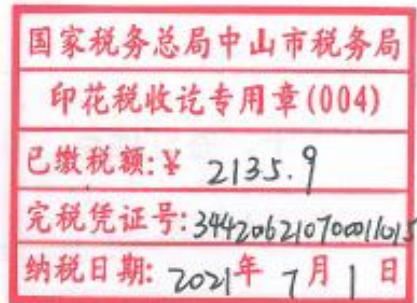 国家税务总局中山市税务局
印花税收讫专用章(004)
已缴税额:¥ 2135.9
完税凭证号:344206210700011015
纳税日期: 2021年 7月 1日